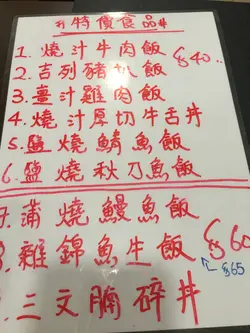 #特價食品#
1. 燒汁牛肉飯 $40..
2. 吉列豬扒飯
3. 薑汁雞肉飯
4. 燒汁厚切牛舌丼
5. 鹽燒鯖魚飯
6. 鹽燒秋刀魚飯
7. 蒲燒鰻魚飯
8. 雜錦魚生飯 $60
$65
三文腩碎丼